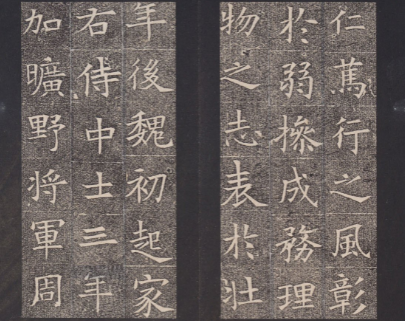 仁蔿行之風彰
於弱操成務理
物之志表於壯
年後魏初起家
右侍中士三年
加曠野将軍周